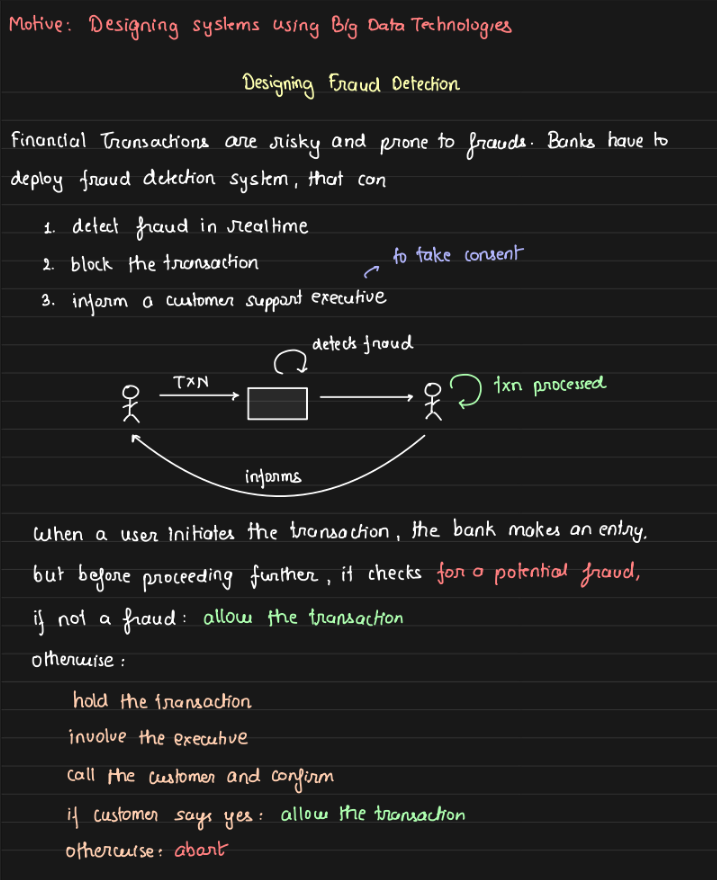 Motive: Designing systems using Big Data Technologies
Designing Fraud Detection
Financial Transactions are risky and prone to frauds. Banks have to
deploy fraud detection system, that can
1. detect fraud in realtime
2. block the transaction
to take consent
3. inform a customer support executive
detects fraud
TXN
txn processed
informs
When a user initiates the transaction, the bank makes an entry.
but before proceeding further, it checks for a potential fraud,
if not a fraud: allow the transaction
otherwise:
hold the transaction
involve the executive
call the customer and confirm
if customer says yes: allow the transaction
otherwise: abort